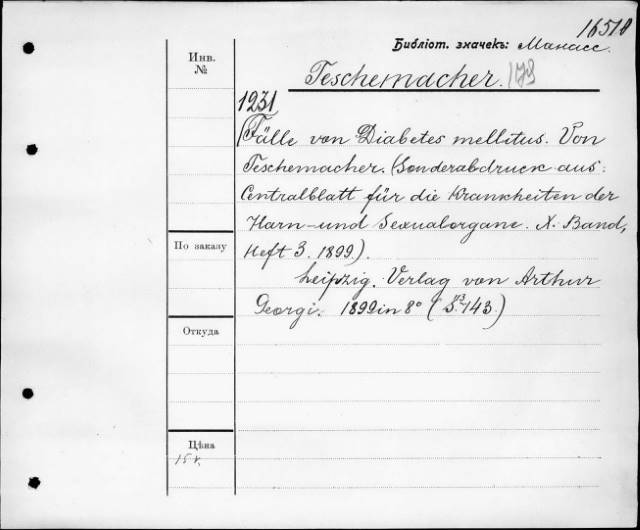 16518
Библіот. значекъ: Манасс.
Инв.
№
Teschemacher.
1231
Fälle von Diabetes mellitus. Von
Teschemacher. (Sonderabdruck aus:
Centralblatt für die Krankheiten der
Harn- und Sexualorgane. X. Band,
Heft 3. 1899.)
По заказу
Leipzig. Verlag von Arthur
Georgi. 1899 in 8° (S. 143.)
Откуда
Цѣна
15 к.